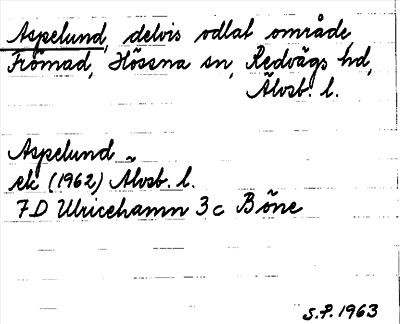 Aspelund, delvis odlat område
Frömad, Hössna sn, Redvägs hd,
Älvsb. l.
Aspelund
ek (1962) Älvsb. l.
7D Ulricehamn 3c Böne
S.P. 1963